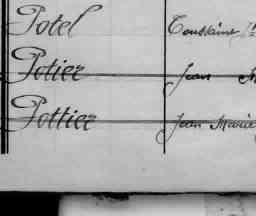 Potel Toussaint
Potier Jean
Pottier Jean Marie